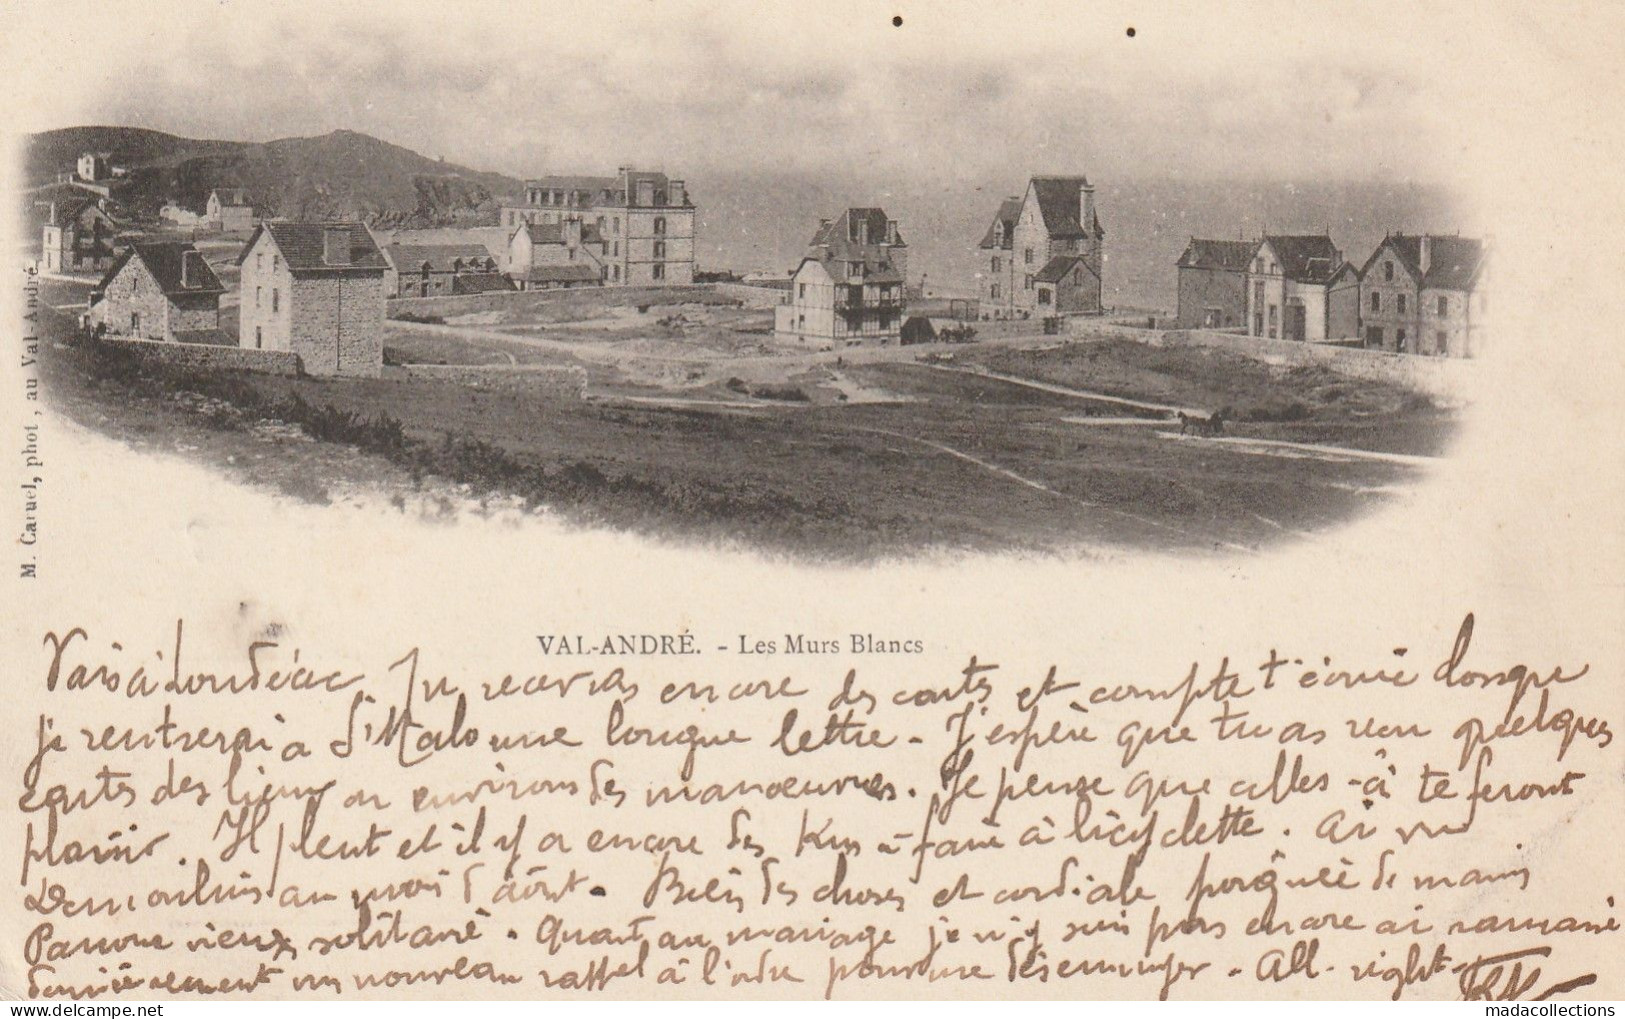 M. Caruel, phot, au Val-André.
VAL-ANDRÉ. - Les Murs Blancs
Vais à Loudéac. Tu recevras encore des cartes et compte t'écrire lorsque
je rentrerai à St Malo une longue lettre - J'espère que tu as reçu quelques
cartes des lieux ou environs des manoeuvres. Je pense que celles-là te feront
plaisir. Il pleut et il y a encore des Kms à faire à bicyclette. Ai vu
Demoulins au mois d'août. Bien des choses et cordiale poignée de mains
Pauvre vieux solitaire. Quant au mariage je n'y suis pas encore ai ramassé
dernièrement un nouveau rappel à l'ordre pour me - All-right -
madacollections